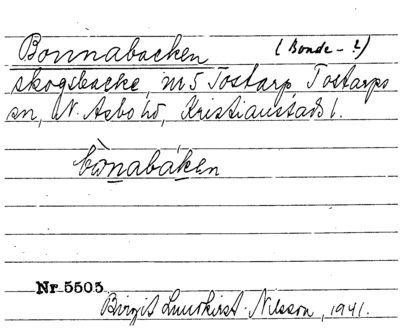 Bonnabacken (Bonde-?)
skogsbacke, nr 5 Tostarp Tostarps
sn, N. Åsbo hd, Kristianstads l.
bònabáken
Nr 5503
Birgit Lundkvist-Nilsson, 1941.